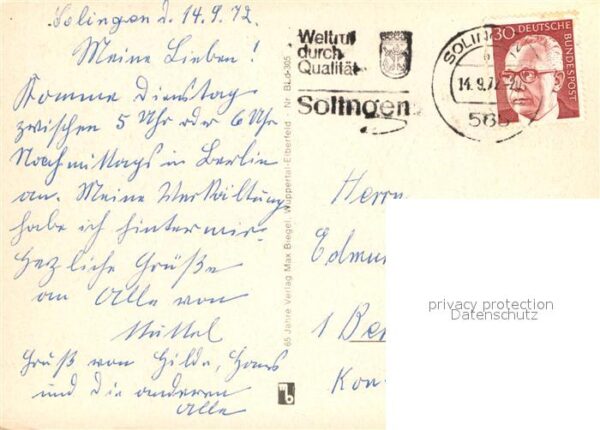 Solingen d. 14.9.72.
Meine Lieben!
Komme Dienstag
zwischen 5 Uhr oder 6 Uhr
Nachmittags in Berlin
an. Meine Verkältung
habe ich hinter mir.
Herzliche Grüße
an Alle von
Muttel
Gruß von Hilde, Hans
und die anderen
Alle
65 Jahre Verlag Max Biegel, Wuppertal-Elberfeld Nr. BLd-305
mb
Weltruf
durch
Qualität
Solingen
SOLINGEN
14.9.72
565
30 DEUTSCHE BUNDESPOST
Herrn
Edmu
1 Be
Kon
privacy protection
Datenschutz